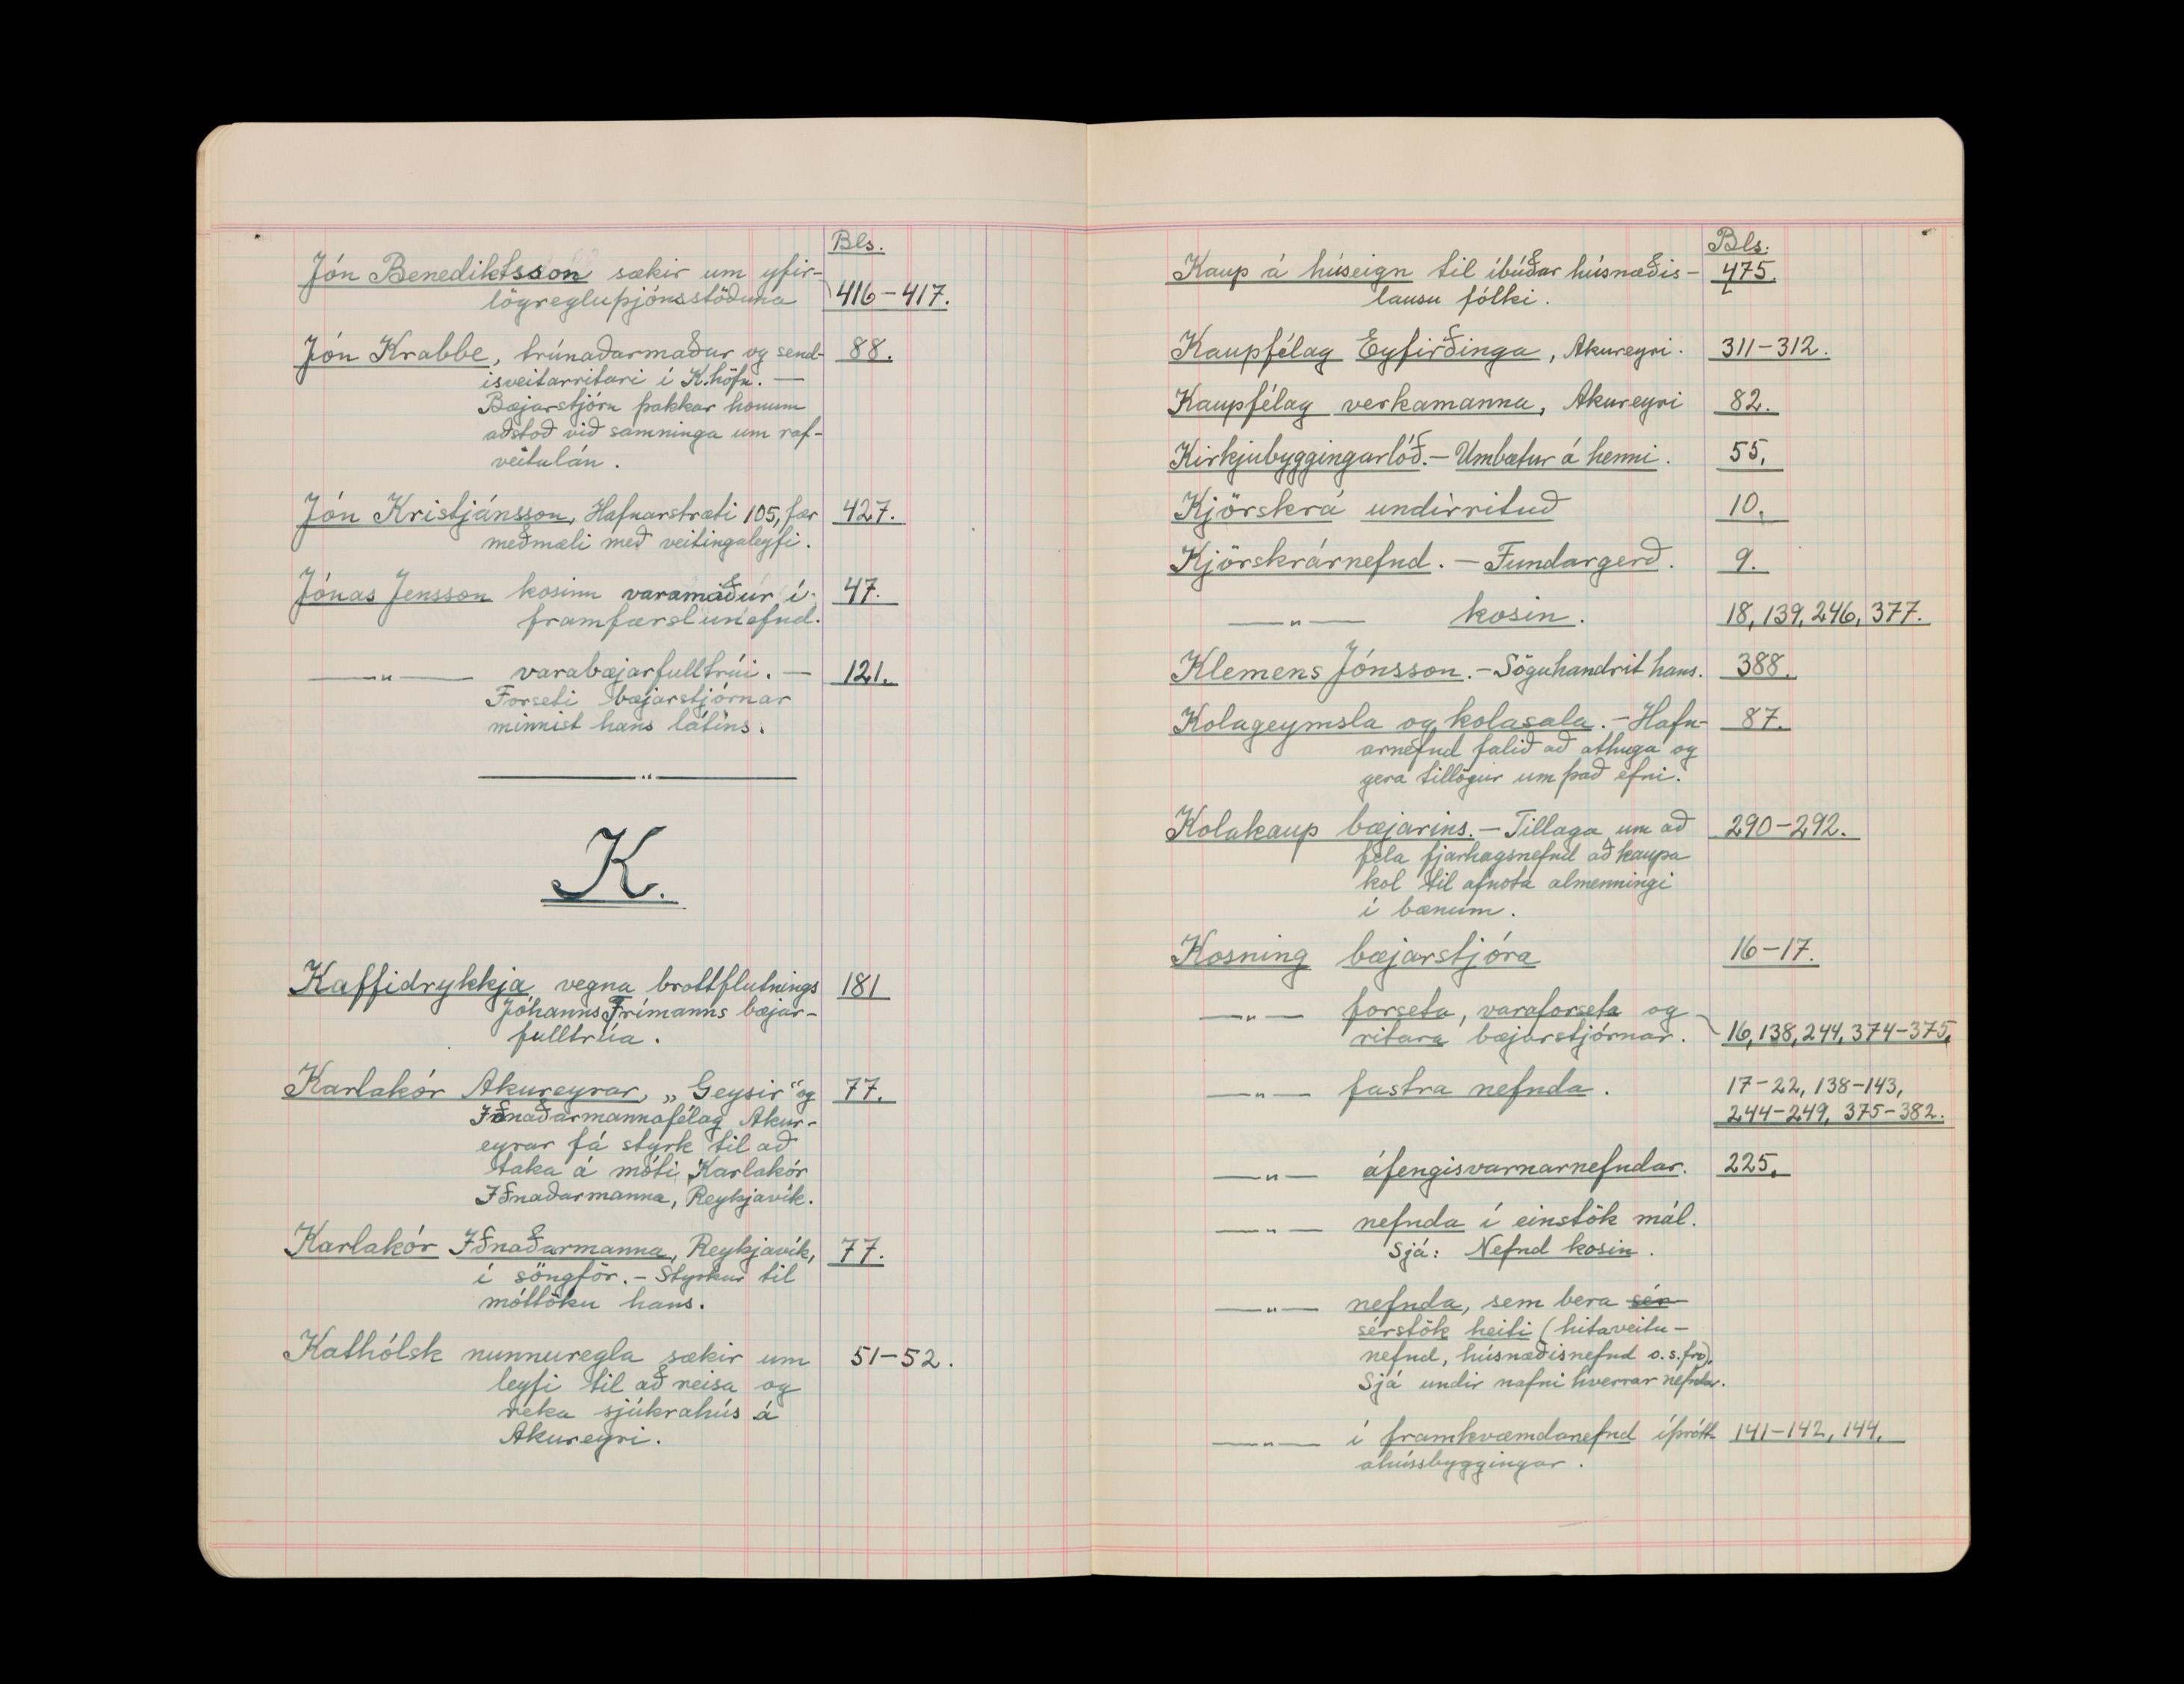 Bls.
Jón Benediktsson sækir um yfir-
lögregluþjónsstöðuna 416-417.
Jón Krabbe, trúnaðarmaður og send- 88.
isveitarritari í K.höfn. —
Bæjarstjórn þakkar honum
aðstoð við samninga um raf-
veitulán.
Jón Kristjánsson, Hafnarstræti 105, fær 427.
meðmæli með veitingaleyfi.
Jónas Jensson kosinn varamaður í 47.
framfærslunefnd.
—"— varabæjarfulltrúi. — 121.
Forseti bæjarstjórnar
minnist hans látins.
—"—
K.
Kaffidrykkja vegna brottflutnings 181
Jóhanns Frímanns bæjar-
fulltrúa.
Karlakór Akureyrar, „Geysir" og 77.
Iðnaðarmannafélag Akur-
eyrar fá styrk til að
taka á móti Karlakór
Iðnaðarmanna, Reykjavík.
Karlakór Iðnaðarmanna, Reykjavík, 77.
í söngför. - Styrkur til
móttöku hans.
Kathólsk nunnuregla sækir um 51-52.
leyfi til að reisa og
reka sjúkrahús á
Akureyri.
Bls.
Kaup á húseign til íbúðar húsnæðis- 475.
lausu fólki.
Kaupfélag Eyfirðinga, Akureyri. 311-312.
Kaupfélag verkamanna, Akureyri 82.
Kirkjubyggingarlóð. - Umbætur á henni. 55.
Kjörskrá undirrituð 10.
Kjörskrárnefnd. - Fundargerð. 9.
—"— kosin. 18, 139, 246, 377.
Klemens Jónsson. - Söguhandrit hans. 388.
Kolageymsla og kolasala. - Hafn- 87.
arnefnd falið að athuga og
gera tillögur um það efni.
Kolakaup bæjarins. - Tillaga um að 290-292.
fela fjarhagsnefnd að kaupa
kol til afnota almenningi
í bænum.
Kosning bæjarstjóra 16-17.
—"— forseta, varaforseta og
ritara bæjarstjórnar. 16, 138, 244, 374-375.
—"— fastra nefnda. 17-22, 138-143,
244-249, 375-382.
—"— áfengisvarnarnefndar. 225.
—"— nefnda í einstök mál.
Sjá: Nefnd kosin.
—"— nefnda, sem bera sér
sérstök heiti (hitaveitu-
nefnd, húsnæðisnefnd o.s.frv).
Sjá undir nafni hverrar nefndar.
—"— í framkvæmdanefnd íþrótt- 141-142, 144.
ahússbyggingar.